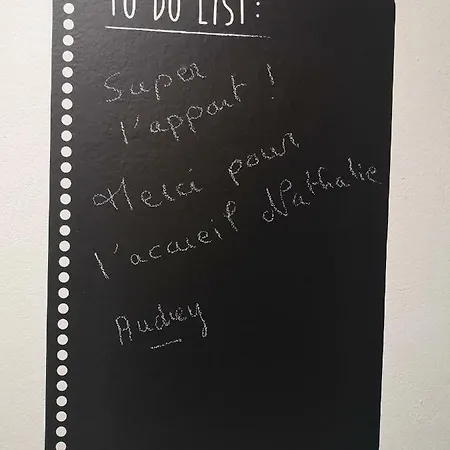 TO DO LIST:
Super
l'appart !
Merci pour
l'accueil Nathalie
Audrey